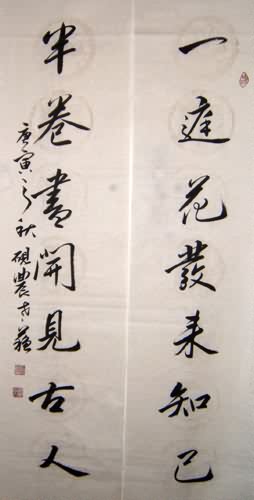 一庭花發來知己
半卷書開見古人
庚寅之秋硯農書